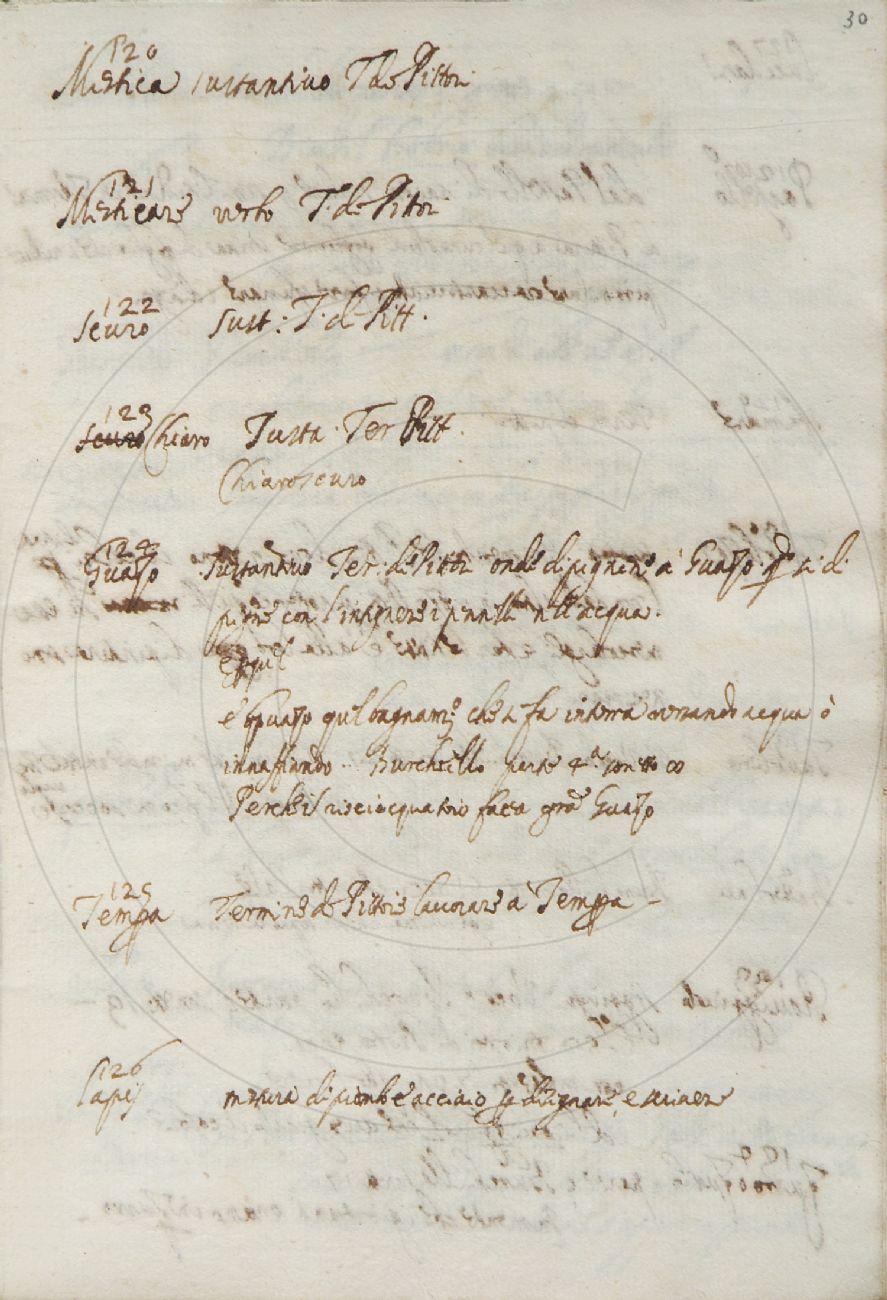 30
120
Mestica sustantivo T de Pittori
121
Mesticare verbo T. de Pittori
122
Scuro sust: T. de Pitt.
123
scuro Chiaro Susta. Ter Pitt.
Chiaroscuro
124
Guazo Sustantivo Ter. de Pittori onde dipignere a Guazo. si di
pignere con l'intignere i pennelli nell'acqua.
è Guazo quel bagnam.to che si fa in terra versando acqua ò
innaffiando. Burchiello parte 4.a sonetto
Perche il risciacquatoio facea gra Guazo
125
Tempra Termine de Pittori e lavorare à Tempra -
126
Lapis mistura di piombo e acciaio p disegnare, e scrivere